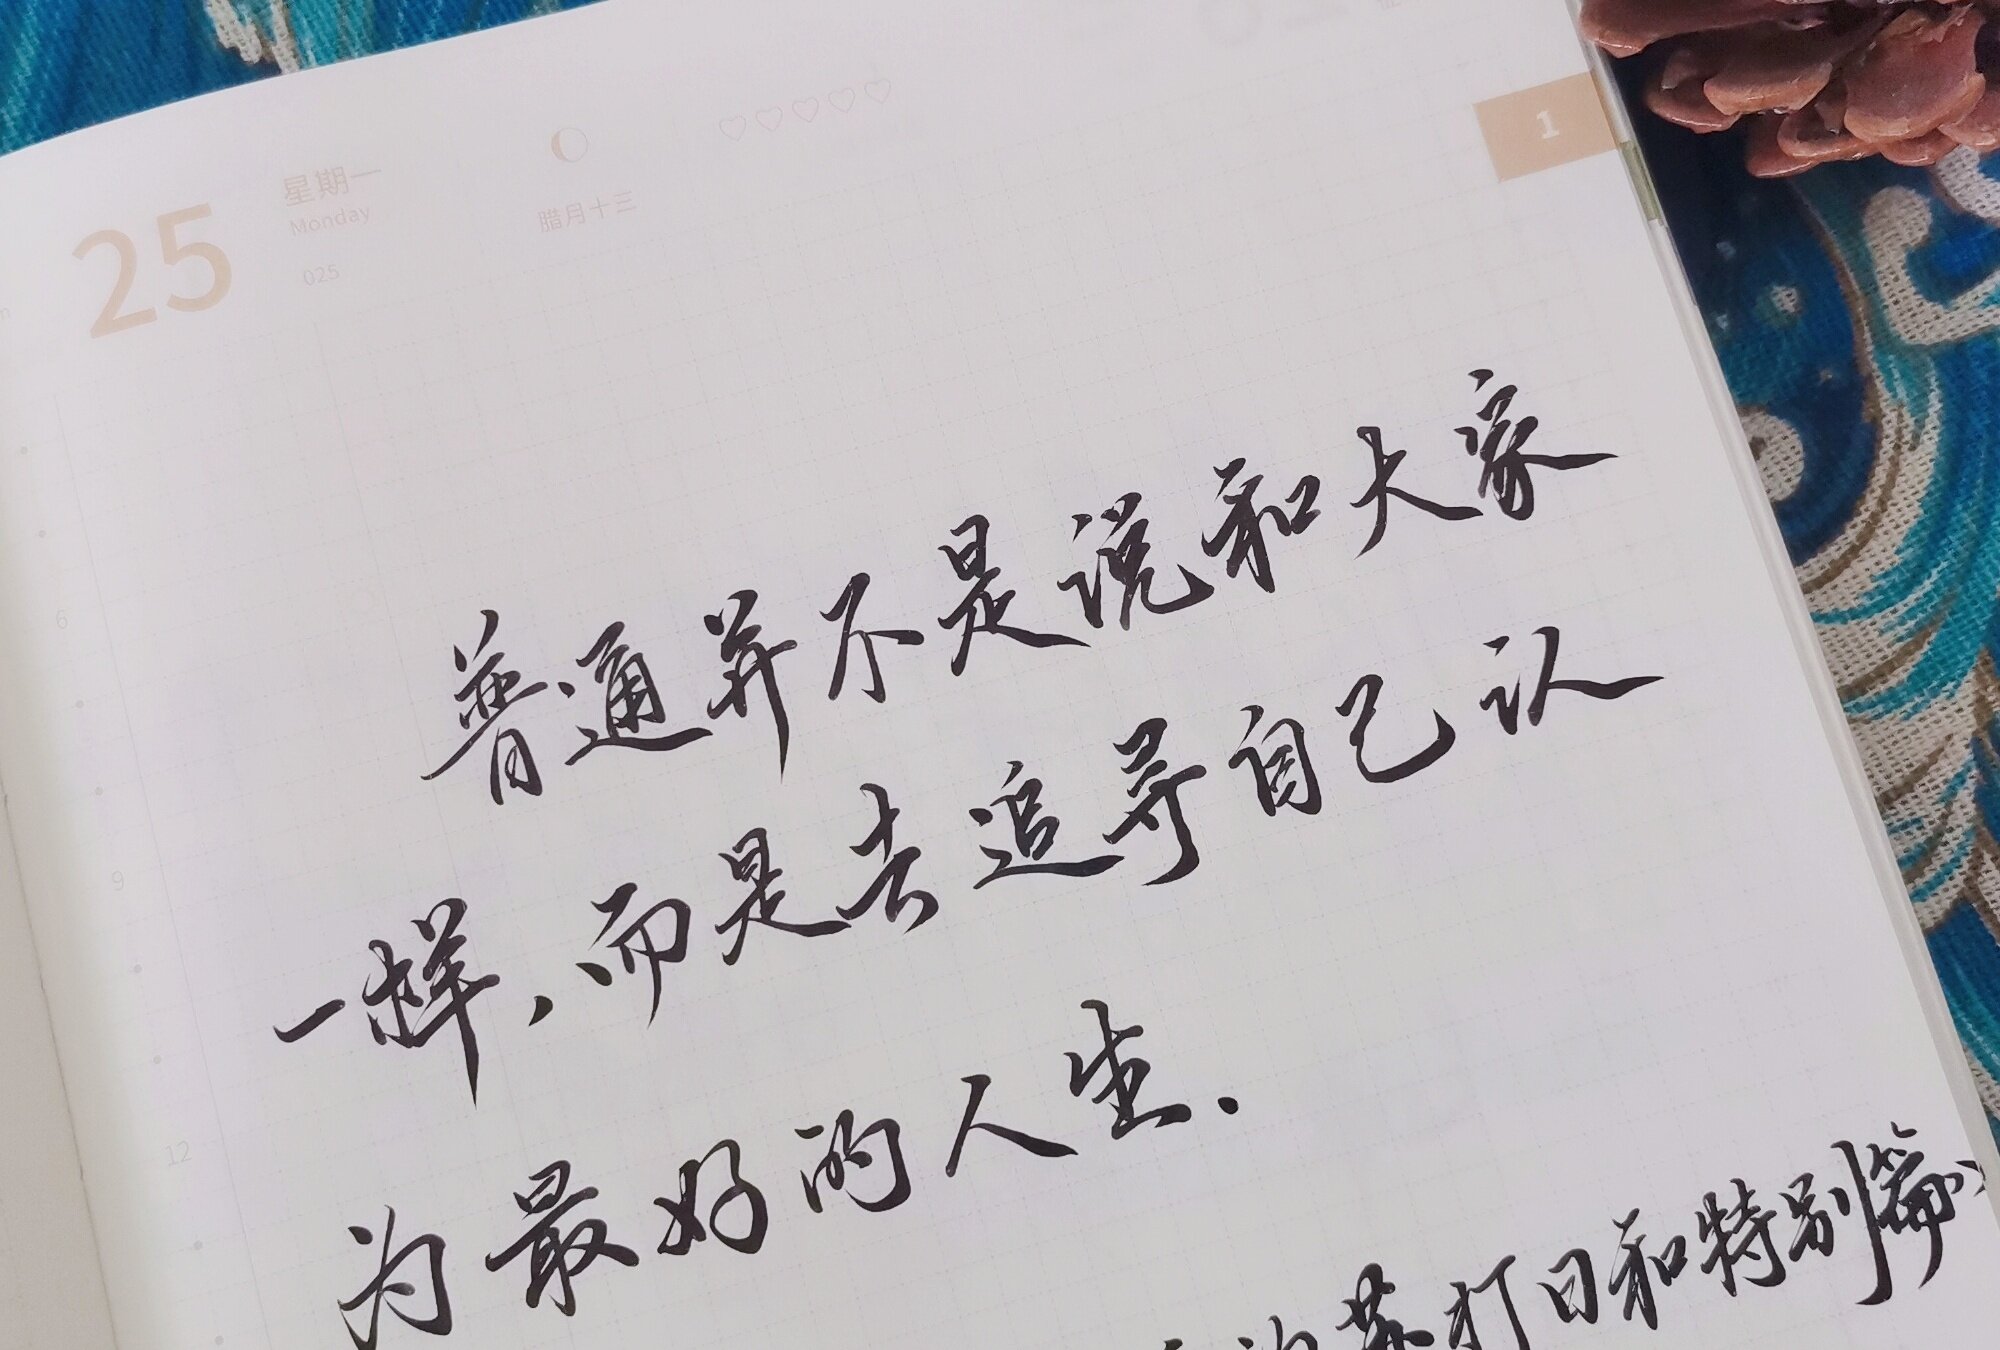 25
星期一
Monday
025
腊月十三
♡♡♡♡♡
1
6
9
12
普通并不是说和大家
一样,而是去追寻自己认
为最好的人生.
苏打日和特别篇